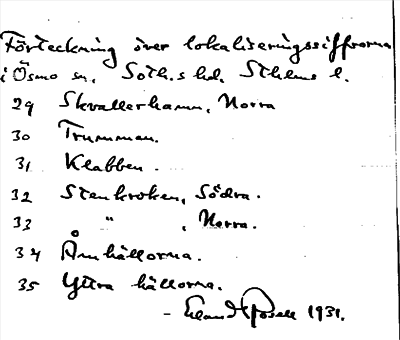 Förteckning över lokaliseringssiffrorna
i Ösmo sn, Soth.s hd. Sthlms l.
29 Skvallerhamn, Norra
30 Trumman.
31 Klabben.
32 Stenkroken, Södra.
33 " , Norra.
34 Åmhällorna.
35 Yttra hällorna.
- Rosell 1931.